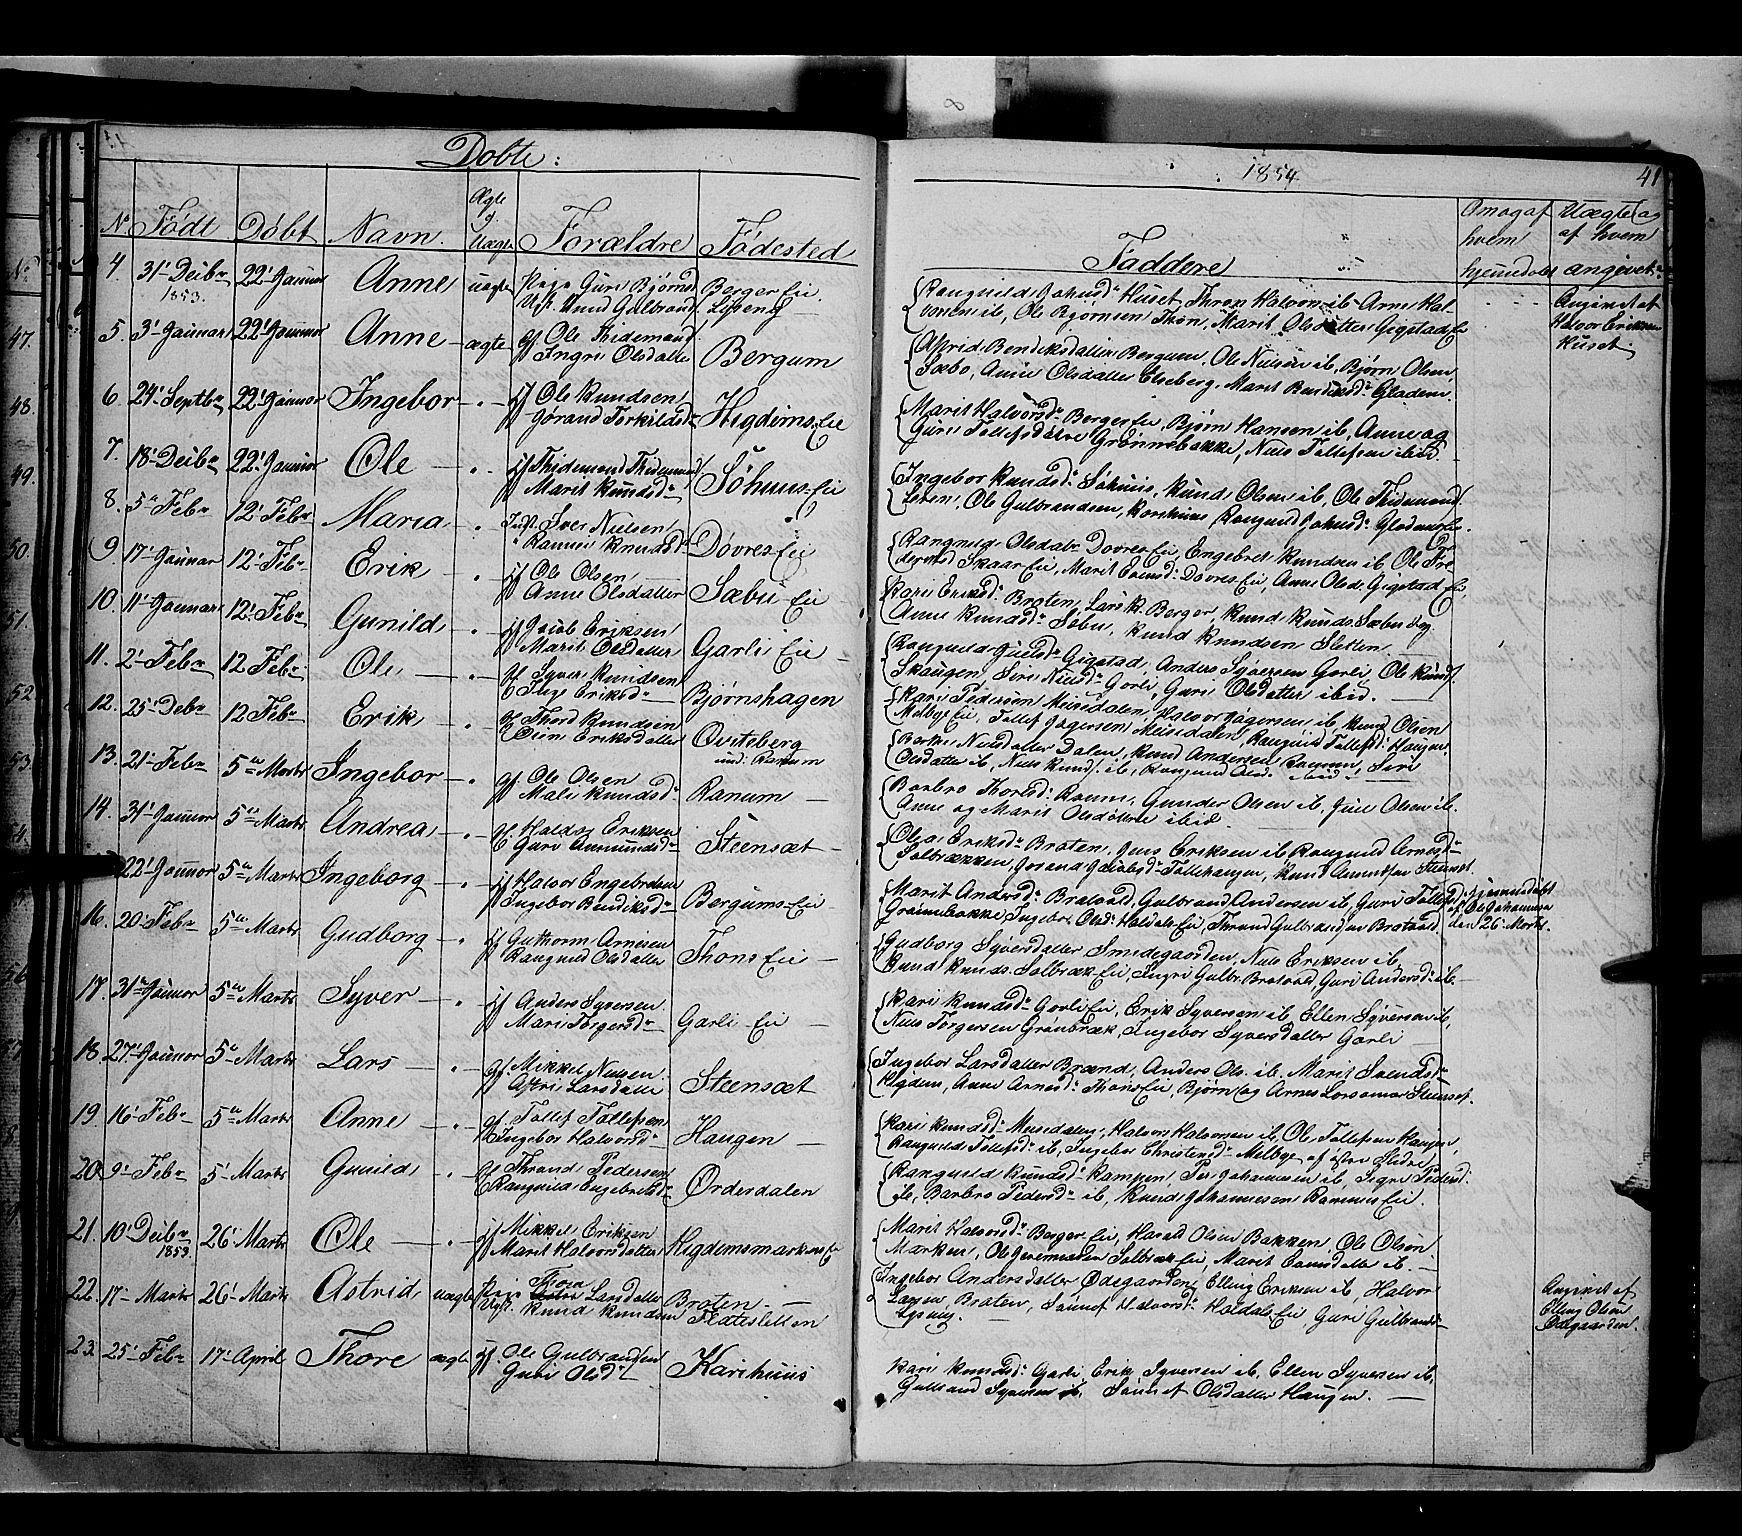 8
Døbte:
1854
41
No Født Døbt Navn. Ægte g. Uægte Forældre Fødested
Faddere
Om og af hvem hjemmedøbt
Uægte og af hvem angivet
4 31' Decbr 1853. 22' Januar Anne uægte Pige Guri Bjørnsd Berger Eie.
Ugk. Knud Gulbrands. Lyseng
Ranguild Johnsd. Huset, Thron Halvors. ib. Arne Halvorsen ib, Ole Bjørnsen Thon, Marit Olsdatter Gigstad Eie
Angivet af Halvor Eriksen Huset
5. 3' Januar 22' Januar Anne ægte gf Ole Thidemand
Ingri Olsdatter Bergum
Astrid Bendiksdatter Bergum, Ole Nielsen ib, Bjørn Olsen
Sæbo, Anne Olsdatter Elseberg, Marit Bendiksd. Gladem.
6 24' Septbr 22' Januar Ingebor " jf Ole Knudsen
Jørand Torkildsd. Higdems Eie
Marit Halvorsd. Berger Eie, Bjørn Hansen ib, Anne og
Guri Tollefsdøtre Grønnebakke, Niels Tollefsen ibid.
7. 18' Decbr 22' Januar Ole " jf Thidemand Thidemand
Marit Knudsd. Søhuus Eie
Ingebor Knudsd. Søhuus, Knud Olsen ib, Ole Thidemand
Ole Gulbrandsen, Ranguild Johnsd. Gladem Eie.
8. 5te Febr 12' Febr Maria " Inst. Iver Nielsen
Rannei Knudsd. Døvres Eie
Ranguild Olsdatr Dovres Eie, Engebret Knudsen ib Ole
Skaar Eie, Marit Evensd. Dovres Eie, Anne Olsd. Gigstad Eie,
9. 17' Januar 12' Febr Erik " jf Ole Olsen
Anne Olsdatter Sæbu Eie
Kari Eriksd. Braten, Lars K. Berger, Knud Knuds. Sæbu og
Anne Knudsd. Sæbu, Knud Knudsen Sletten
10. 11' Januar 12' Febr Gunild " jf Jacob Eriksen
Marit Olsdatter Garli Eie
Ranguild Gigstad, Anders Syversen Garli, Ole Knuds.
Skaugen, Siri Nielsd. Garli, Guri Olsdatter ibid.
11. 2' Febr 12 Febr Ole " gf Syver Knudsen
Inge Eriksd. Bjørnshagen
Kari Pedersen Meisdalen, Halvor Jøgersen ib, Knud Olsen
Melbye Eie, Tollef Jøgersen Meisdalen, Ranguild Tollefsd. Haugen
12. 25' Debr 12 Febr Erik " gf Thord Knudsen
Eriksdatter Qviteberg
und. Ranum
Nielsdatter Dalen, Knud Andersen Ranum, Siri
Olsdatter ib, Niels Knuds. ib, Ranguild Olsd. ibid.
13. 21' Febr 5te Marts Ingebor " gf Ole Olsen
Mali Knudsd. Ranum
Barbro Thorsd. Ranum, Gunder Olsen ib, Juul Olsen ib.
Anne og Marit Olsdøttre ibid.
14. 31' Januar 5te Marts Andrea " gf. Haldor Eriksen
Guri Aamundsd. Steensæt
Olea Eriksd. Braten, Jens Eriksen ib Ranguild Arnesd.
Solbrækken, Jorand Jacobsd. Tollehaugen, Knud Steenset.
22' Januar 5te Marts Ingeborg " jf Halvor Engebretsen
Ingebor Bendiksd. Bergums Eie
Marit Andersd. Brataad, Gulbrand Andersen ib, Guri Tollefsd.
Grønnebakke, Ingebor Olsd. Haldals Eie, Thrond Gulbrandsen Brataad
hjemmedøbt af Ole Johannesen den 26' Marts.
16. 20' Febr 5te Marts Gudborg " jf Guthorm Arnesen
Ranguild Olsdatter Thons Eie
Gudborg Syversdatter Smedegaarden, Niels Eriksen ib.
Knud Knuds. Solbræk Eie, Ingri Gulbr. Brataad, Guri Andersd. ib.
17. 31te Januar 5te Marts Syver " jf Anders Syversen
Mari Torgersd. Garli Eie
Kari Knudsd. Garli Eie, Erik Syversen ib Ellen Syversen ib,
Niels Torgersen Grønbræk, Ingebor Syversdatter Garli
18. 27' Januar 5te Marts Lars " gf. Mikkel Nielsen
Astri Larsdatter Steensæt
Ingebor Larsdatter Brænd, Anders Ols. ib. Marit Svendsd.
Higdem, Anne Arnesd. Thons Eie, Bjørn og Arnes Steenset.
19. 16' Febr 5te Marts Anne " gf. Tollef Tollefsen
Ingebor Halvorsd. Haugen
Kari Knudsd. Meisdalen, Halvor Halvorsen ib, Ole Tollefsen Haugen,
Ranguild Tollefsd. ib, Ingebor Christensd. Melbye af østre Slidre
20. 9' Febr 5' Marts Gunild " gf Thrond Pedersen
Ranguild Engebretsd. Ørderdalen
Ranguild Knudsd. Kampen, Per Johannesen ib, Sigri Pedersd.
ib, Barbro Pedersd. ib, Knud Johannesen Ranums Eie.
21. 10' Decbr 1853. 26' Marts Ole " jf Mikkel Eriksen
Marit Halvorsdatter Higdemsmarkens Ei
Marit Halvorsd. Berger Eie, Harald Olsen Bakken, Ole Olsen
Marken, Ole Jeremiassen Solbræk Eie, Marit ib.
22. 17' Marts 26' Marts Astrid uægte Pige Thora Larsdatter Braten
Ugk. Knud Knudsen Flatesletten
Ingebor Andersdatter Ødegaarden, Elling Eriksen ib, Halvor
Larsen Braten, Halvorsd. Haldals Eie, Guri Gulbrandsd.
Lyseng.
Angivet af Elling Olsen Ødegaarden.
23. 25' Febr 17' April Thore ægte jf. Ole Gulbrandsen
Guri Olsd. Karihuus
Kari Knudsd. Garli, Erik Syversen ib, Ellen Syversen ib,
Gulbrand Syversen ib, Olsdatter Haugen.
47.
48.
49.
50.
51.
52
53
56